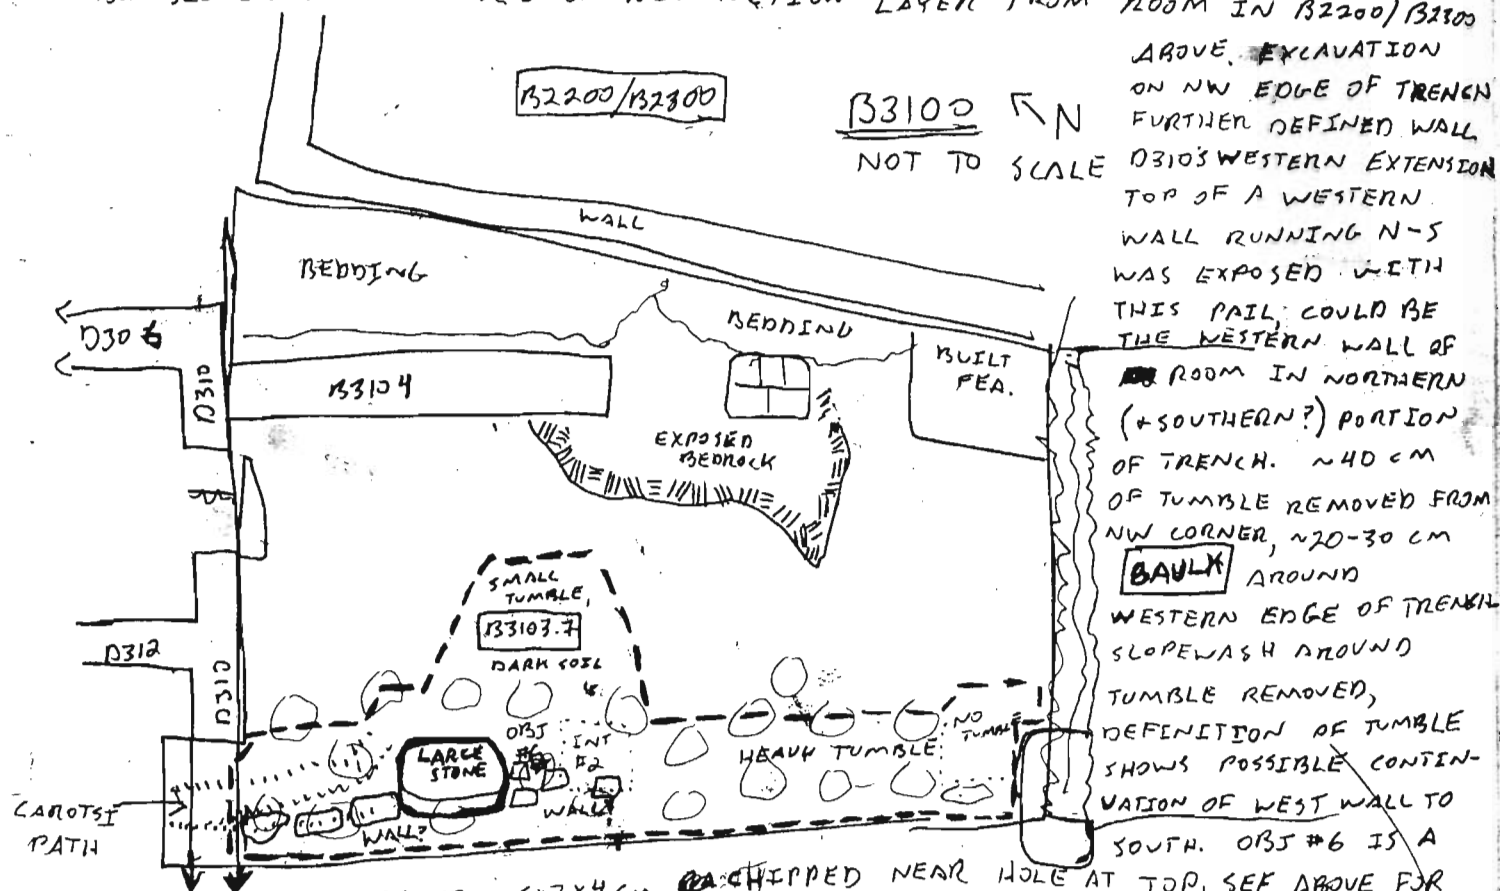 LAYER FROM ROOM IN B2200/B2300
ABOVE. EXCAVATION
ON NW EDGE OF TRENCH
FURTHER DEFINED WALL
D310'S WESTERN EXTENSION
TOP OF A WESTERN
WALL RUNNING N-S
WAS EXPOSED WITH
THIS PAIL; COULD BE
THE WESTERN WALL OF
ROOM IN NORTHERN
(+ SOUTHERN?) PORTION
OF TRENCH. ~40 CM
OF TUMBLE REMOVED FROM
NW CORNER, ~20-30 CM
BAULK AROUND
WESTERN EDGE OF TRENCH
SLOPEWASH AROUND
TUMBLE REMOVED,
DEFINITION OF TUMBLE
SHOWS POSSIBLE CONTIN-
UATION OF WEST WALL TO
SOUTH. OBJ #6 IS A
CHIPPED NEAR HOLE AT TOP, SEE ABOVE FOR
B2200/B2300
B3100 N
NOT TO SCALE
WALL
BEDDING
BEDDING
D306
D310
B3104
BUILT
FEA.
EXPOSED
BEDROCK
SMALL
TUMBLE,
B3103.7
DARK SOIL
D312
D310
OBJ
#6
INT
#2
LARGE
STONE
WALL?
WALL?
HEAVY TUMBLE
NO
TUMBLE
CAROTSI
PATH